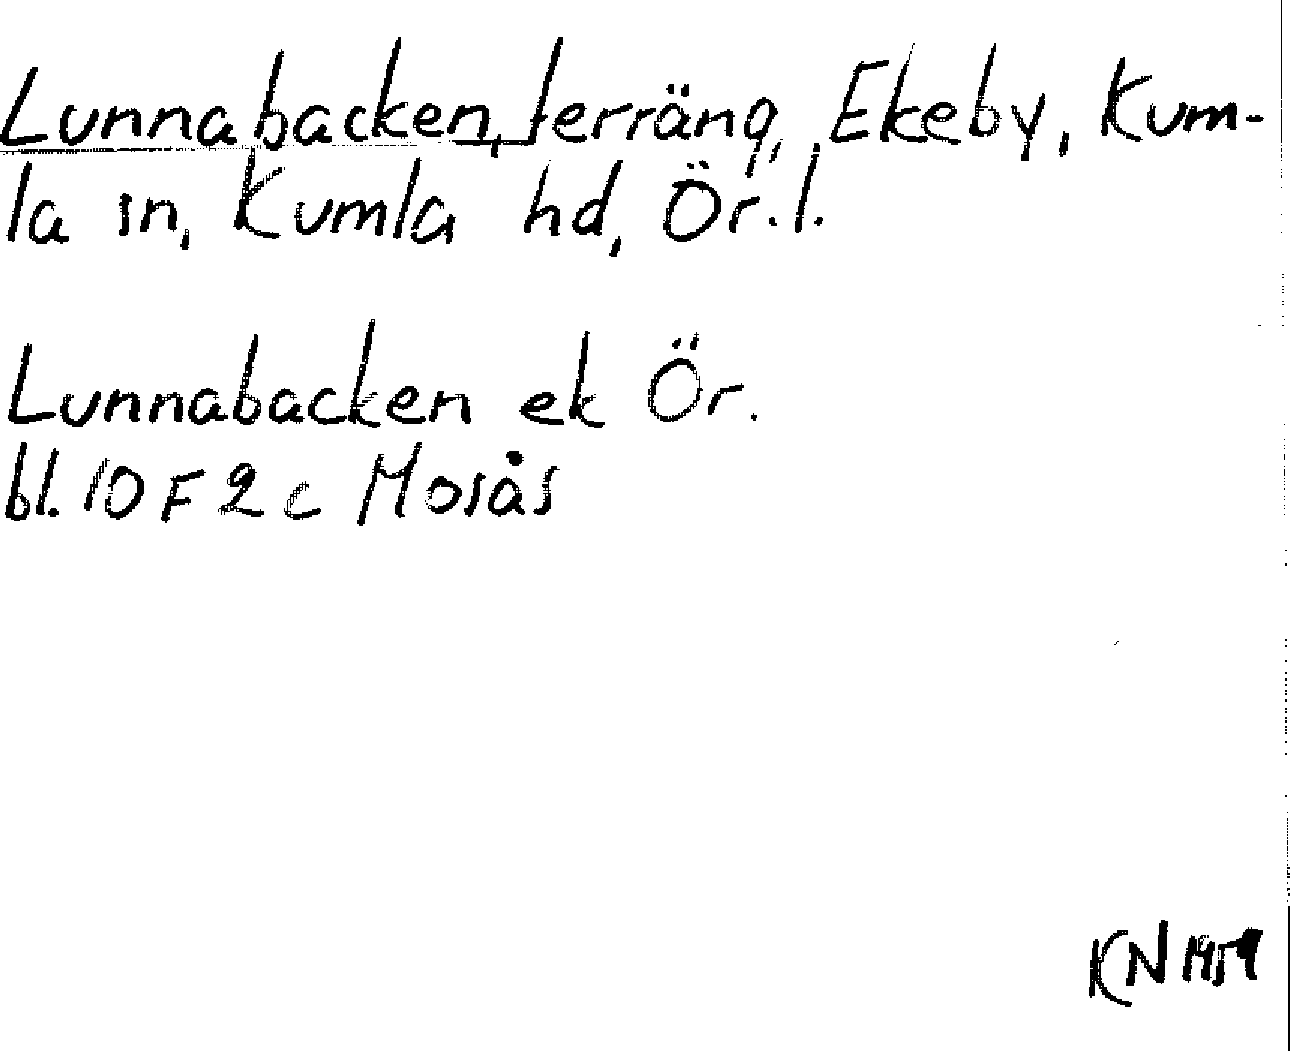 Lunnabacken, terräng, Ekeby, Kum-
la sn, Kumla hd, Ör. l.
Lunnabacken ek Ör.
bl. 10 F 2 c Mosås
KN 1959